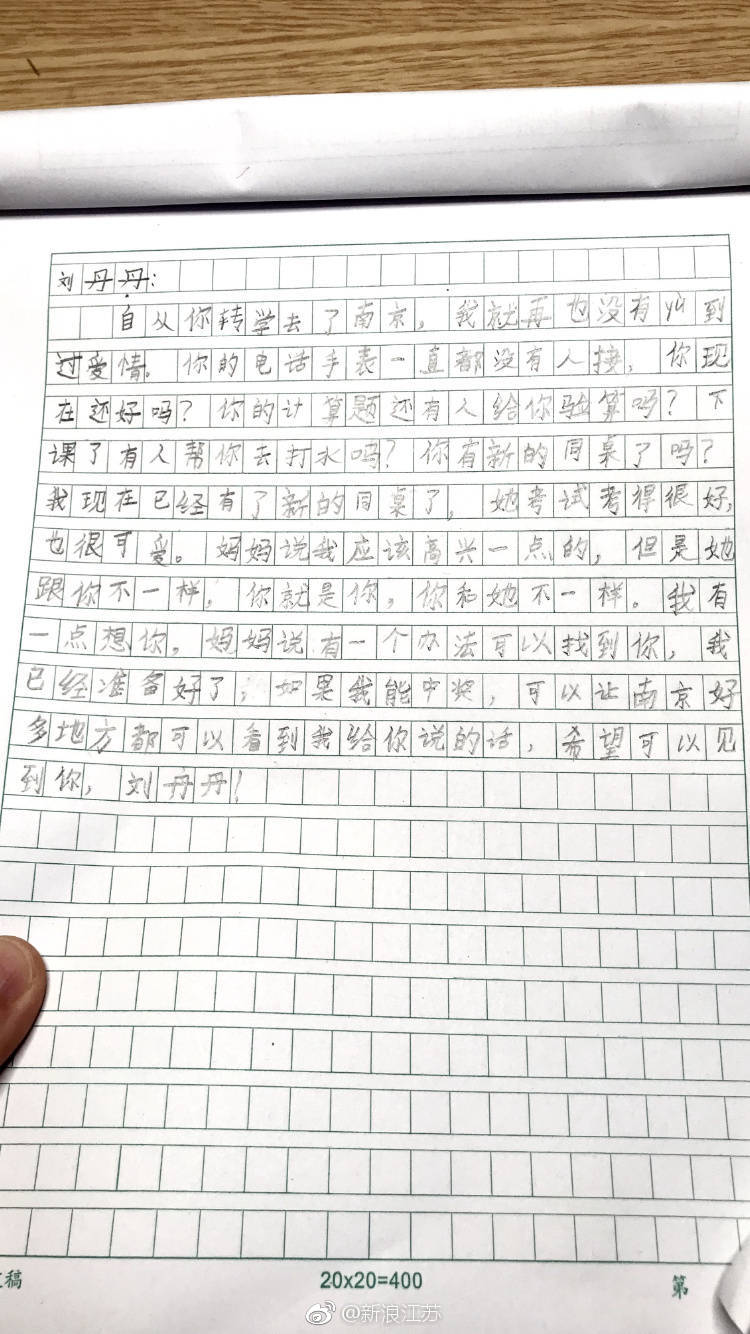 刘丹丹:
自从你转学去了南京,我就再也没有yu到
过爱情。你的电话手表一直都没有人接,你现
在还好吗?你的计算题还有人给你验算吗?下
课了有人帮你去打水吗?你有新的同桌了吗?
我现在已经有了新的同桌了,她考试考得很好,
也很可爱。妈妈说我应该高兴一点的,但是她
跟你不一样,你就是你,你和她不一样。我有
一点想你,妈妈说有一个办法可以找到你,我
已经准备好了,如果我能中奖,可以让南京好
多地方都可以看到我给你说的话,希望可以见
到你,刘丹丹!
稿 20x20=400 第
@新浪江苏